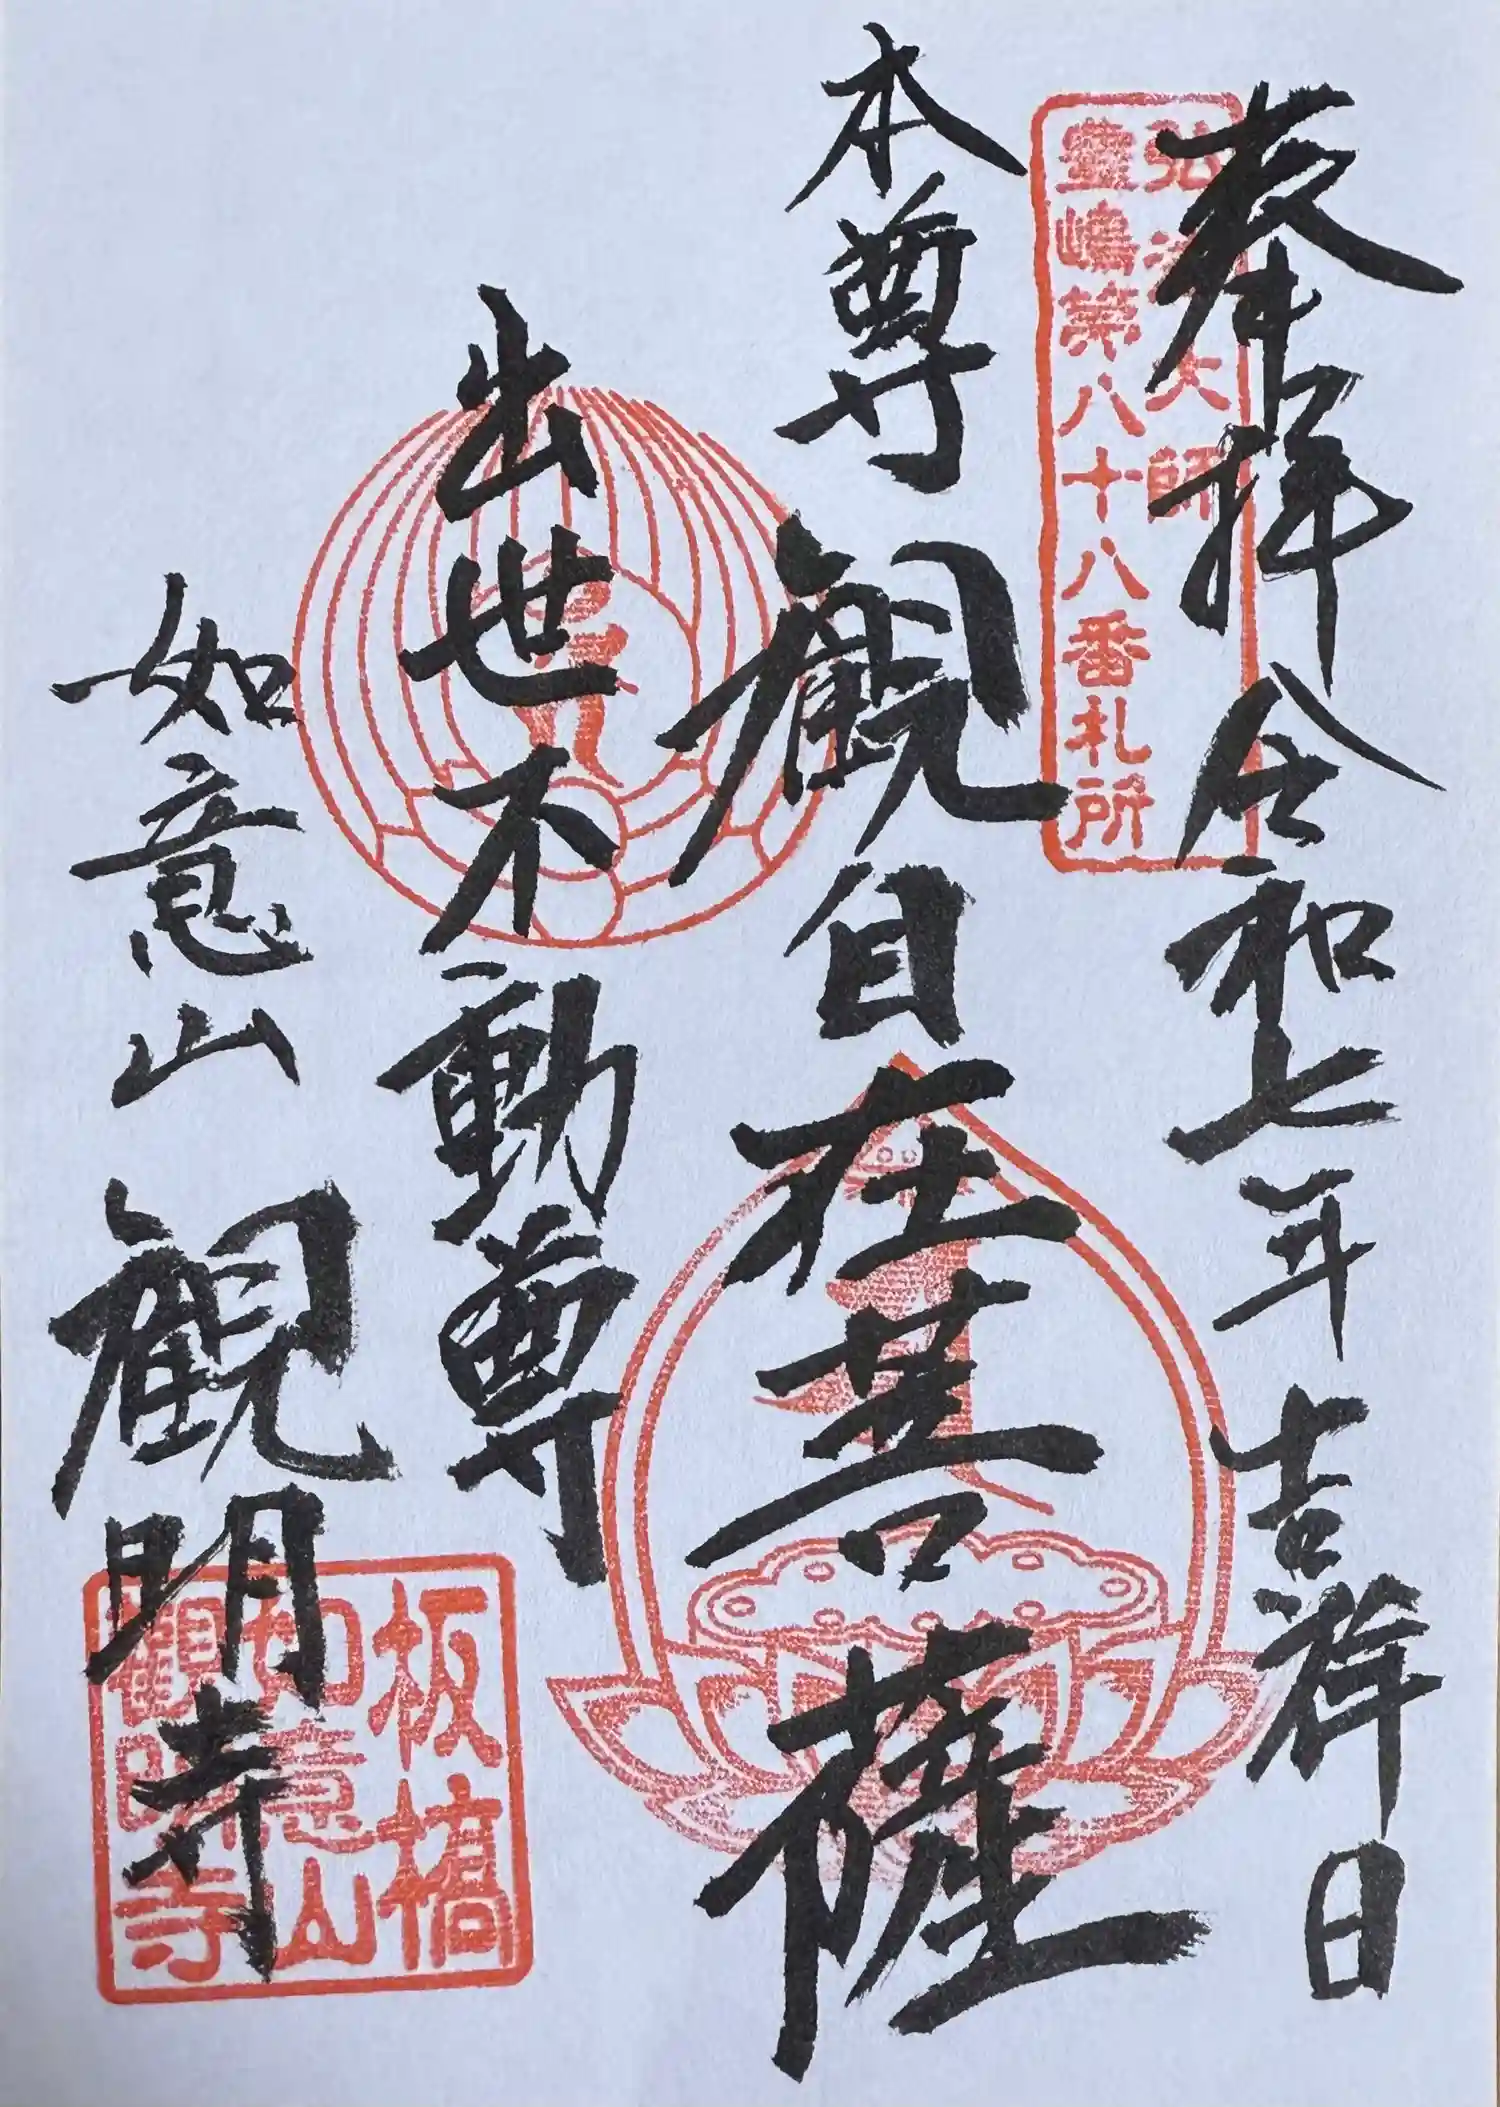 奉拝 令和七年吉祥日
弘法大師
豊嶋第八十八番札所
本尊 観自在菩薩
出世不動尊
如意山 観明寺
板橋
如意山
観明寺